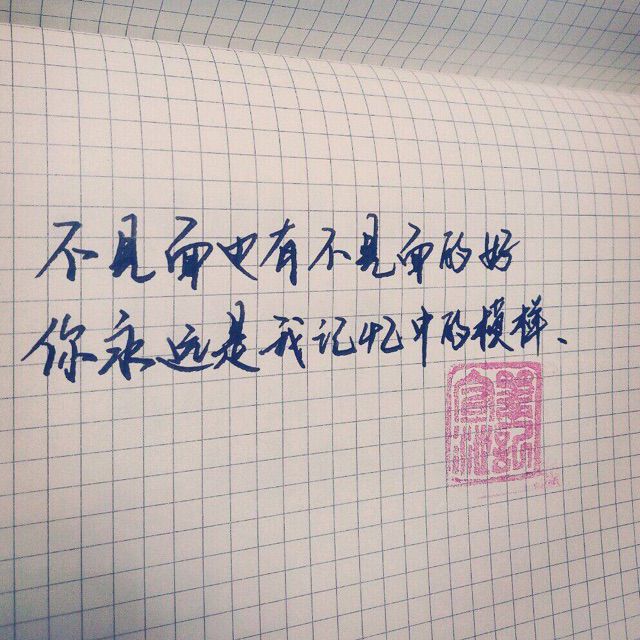 不见面也有不见面的好
你永远是我记忆中的模样、